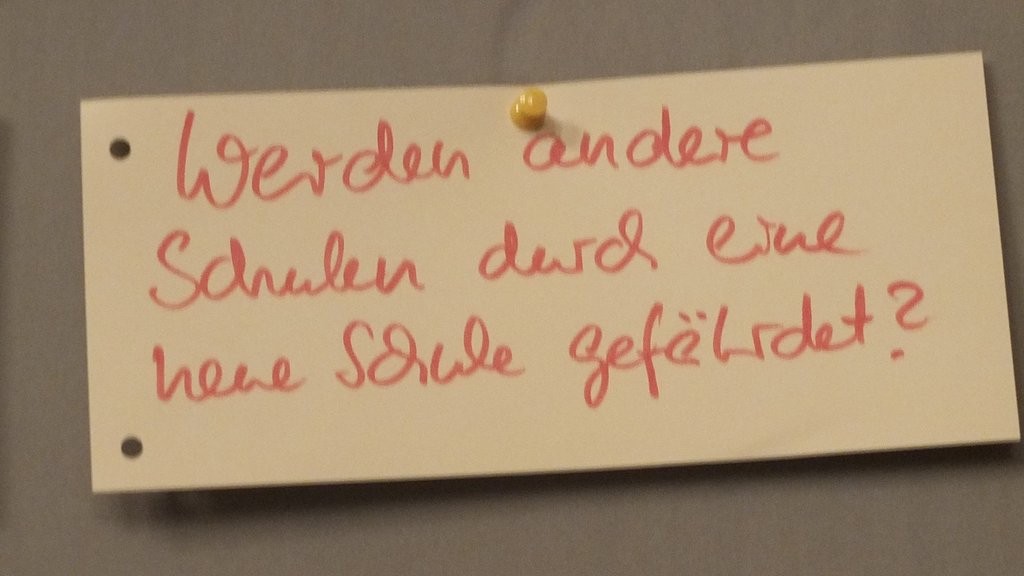 Werden andere
Schulen durch eine
neue Schule gefährdet?